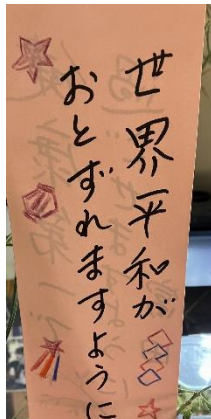 世界平和が
おとずれますように